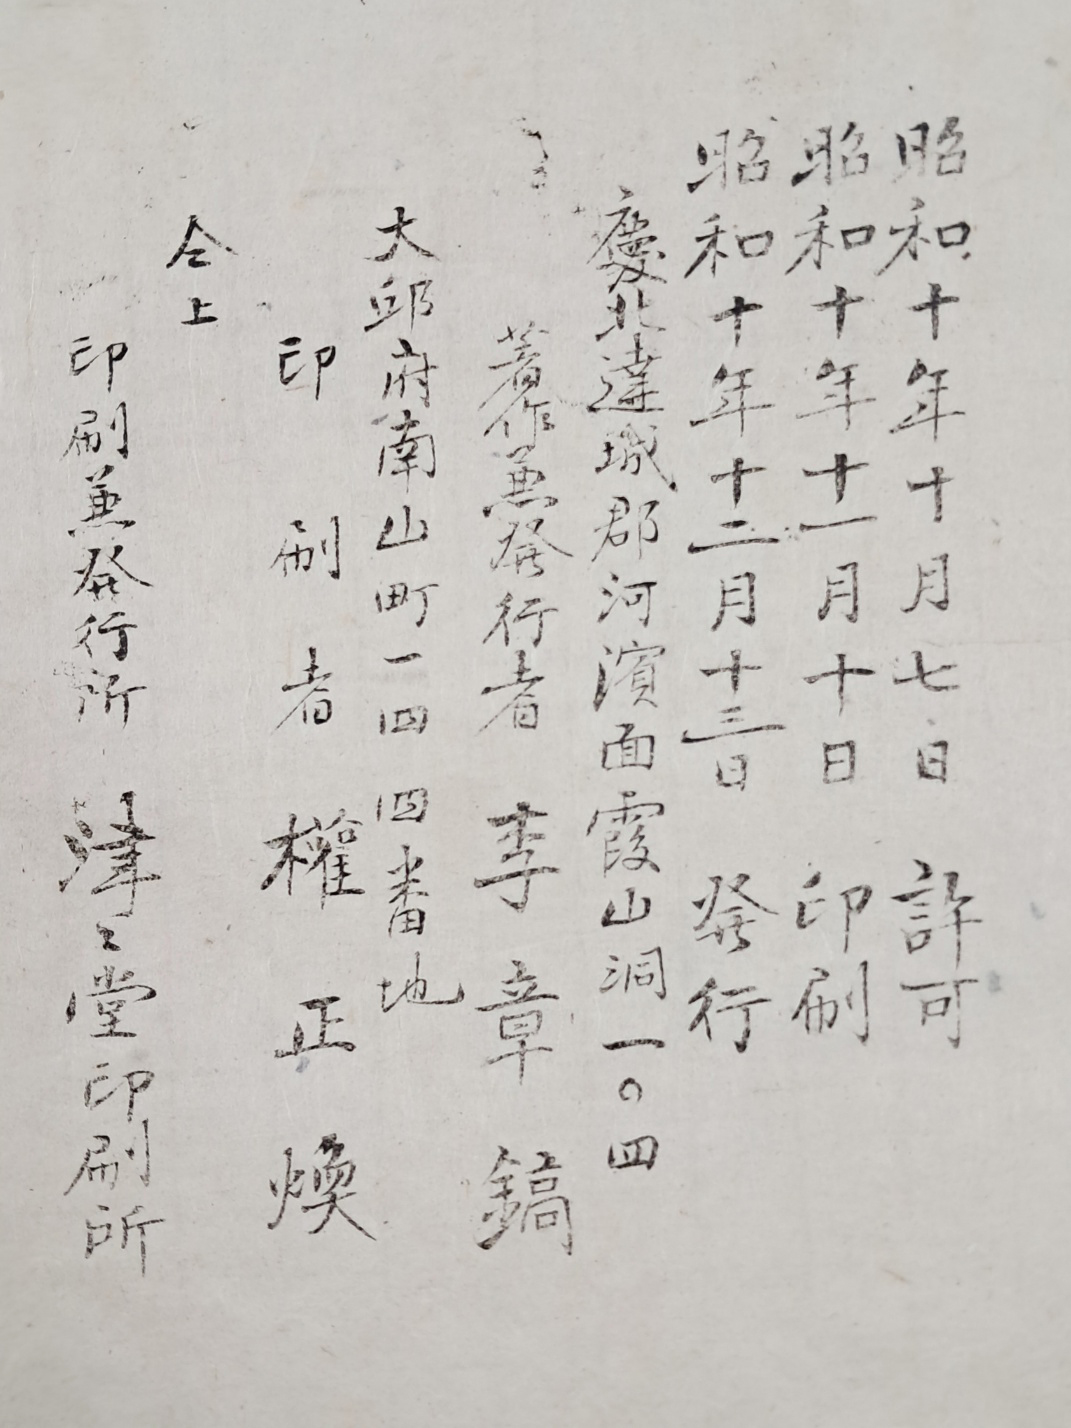 昭和十年十月七日 許可
昭和十年十一月十日 印刷
昭和十年十二月十三日 発行
慶北達城郡河濱面霞山洞一〇四
著作兼発行者 李章鎬
大邱府南山町一四四番地
印刷者 權正煥
仝上
印刷兼発行所 津々堂印刷所